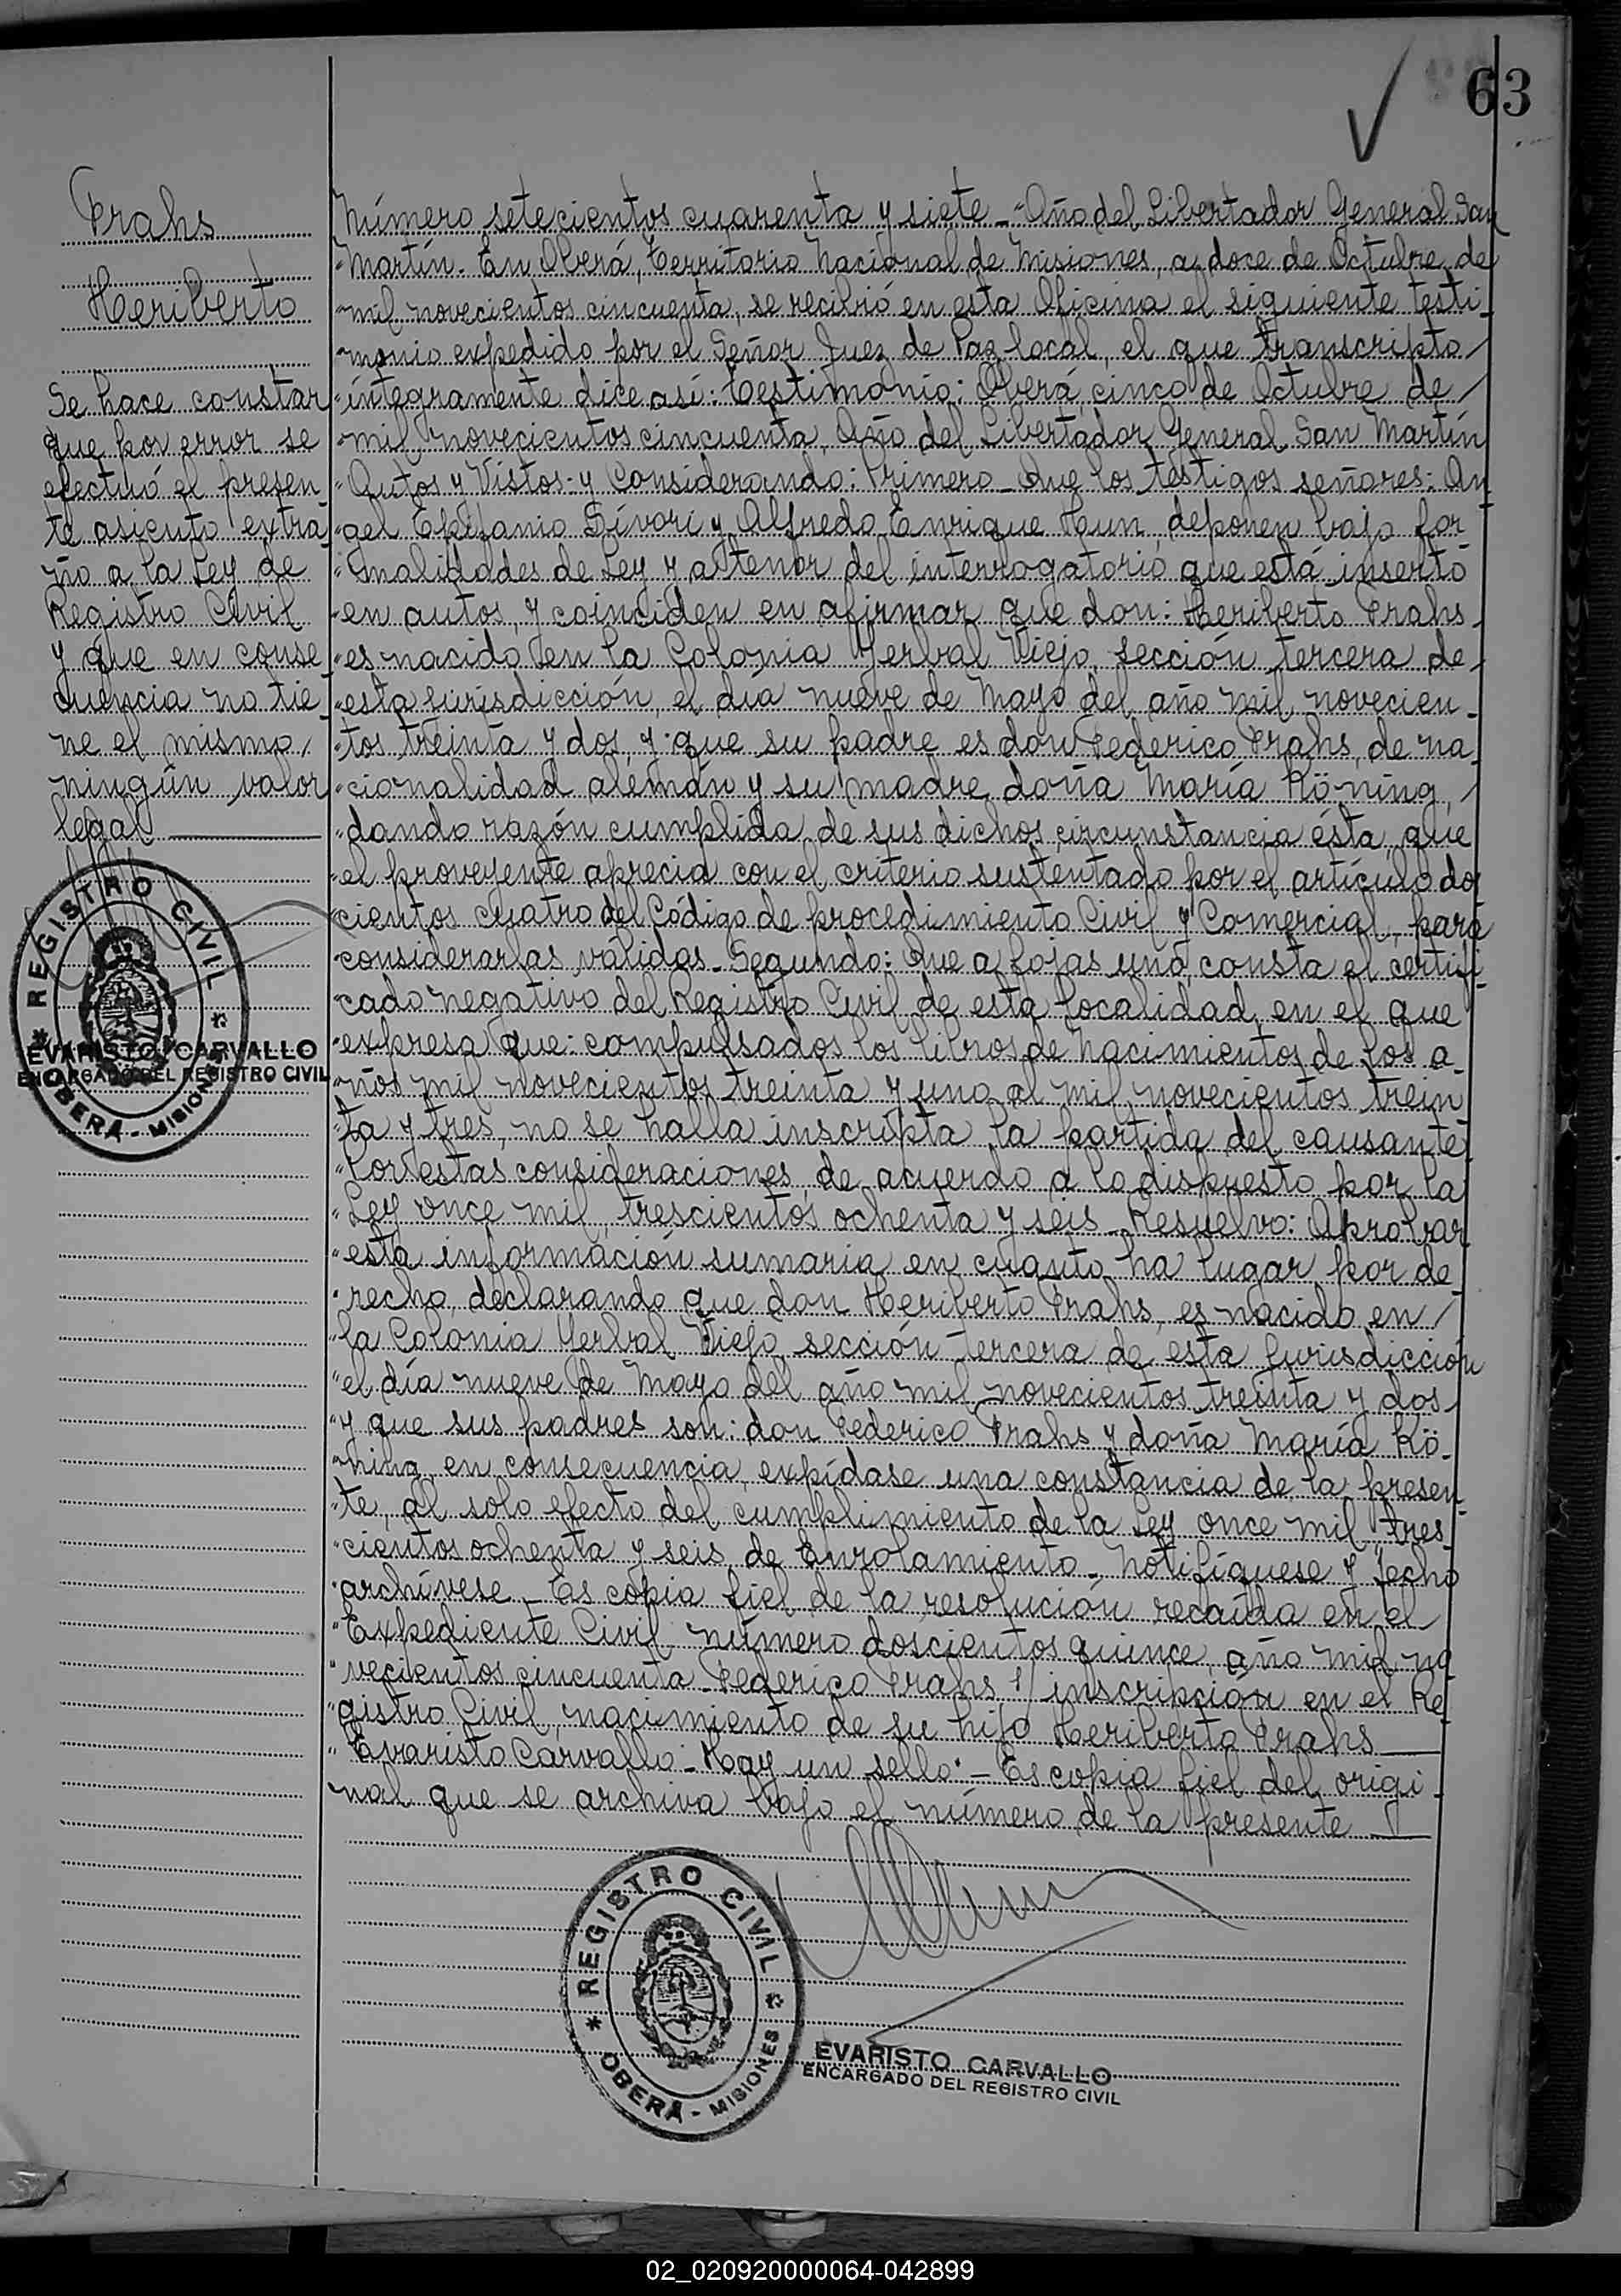 63
Prahs
Heriberto
Se hace constar
que por error se
efectuó el presen-
te asiento extra-
ño a la Ley de
Registro Civil
y que en conse
cuencia no tie-
ne el mismo/
ningún valor
legal
REGISTRO CIVIL
OBERÁ - MISIONES
EVARISTO CARVALLO
ENCARGADO DEL REGISTRO CIVIL
Número setecientos cuarenta y siete - "Año del Libertador General San
"Martín. En Oberá, Territorio Nacional de Misiones, a doce de Octubre de
"mil novecientos cincuenta, se recibió en esta Oficina el siguiente testi-
"monio expedido por el Señor Juez de Paz local, el que transcripto/
"íntegramente dice así: Testimonio: Oberá, cinco de Octubre de/
"mil novecientos cincuenta, Año del Libertador General San Martín
"Autos y Vistos: y Considerando: Primero - Que los testigos señores: An-
"gel Epifanio Sívori y Alfredo Enrique Hun, deponen bajo for
"malidades de Ley y a tenor del interrogatorio que está inserto
"en autos, y coinciden en afirmar que don: Heriberto Prahs
"es nacido en la Colonia Yerbal Viejo, sección tercera de/
"esta jurisdicción, el día nueve de Mayo del año mil novecien-
"tos treinta y dos, y que su padre es don Federico Prahs, de na-
"cionalidad alemán y su madre doña María Röning, /
"dando razón cumplida de sus dichos, circunstancia ésta, que
"el proveyente aprecia con el criterio sustentado por el artículo dos
cientos cuatro del Código de procedimiento Civil y Comercial, para
"considerarlas válidas. Segundo: Que a fojas una, consta el certifi
"cado negativo del Registro Civil de esta localidad, en el que
"expresa que: compulsados los libros de Nacimientos de los a-
"ños mil novecientos treinta y uno al mil novecientos trein
"ta y tres, no se halla inscripta la partida del causante
"Por estas consideraciones, de acuerdo a lo dispuesto por la
"Ley once mil, trescientos ochenta y seis - Resuelvo: Aprobar
"esta información sumaria en cuanto ha lugar por de
"recho, declarando que don Heriberto Prahs, es nacido en/
"la Colonia Yerbal Viejo, sección tercera de esta jurisdicción
"el día nueve de Mayo del año mil novecientos treinta y dos
"y que sus padres son: don Federico Prahs y doña María Rö-
"ning, en consecuencia, expídase una constancia de la presen-
"te, al solo efecto del cumplimiento de la Ley once mil, tres
"cientos ochenta y seis, de Enrolamiento - Notifíquese y fecho
"archívese - Es copia fiel de la resolución recaída en el
"Expediente Civil número doscientos quince, año mil no
"vecientos cincuenta - Federico Prahs s/ inscripción en el Re
"gistro Civil, nacimiento de su hijo Heriberto Prahs
"Evaristo Carvallo - Hay un sello" - Es copia fiel del origi-
nal que se archiva bajo el número de la presente
REGISTRO CIVIL
OBERÁ - MISIONES
EVARISTO CARVALLO
ENCARGADO DEL REGISTRO CIVIL
02_020920000064-042899